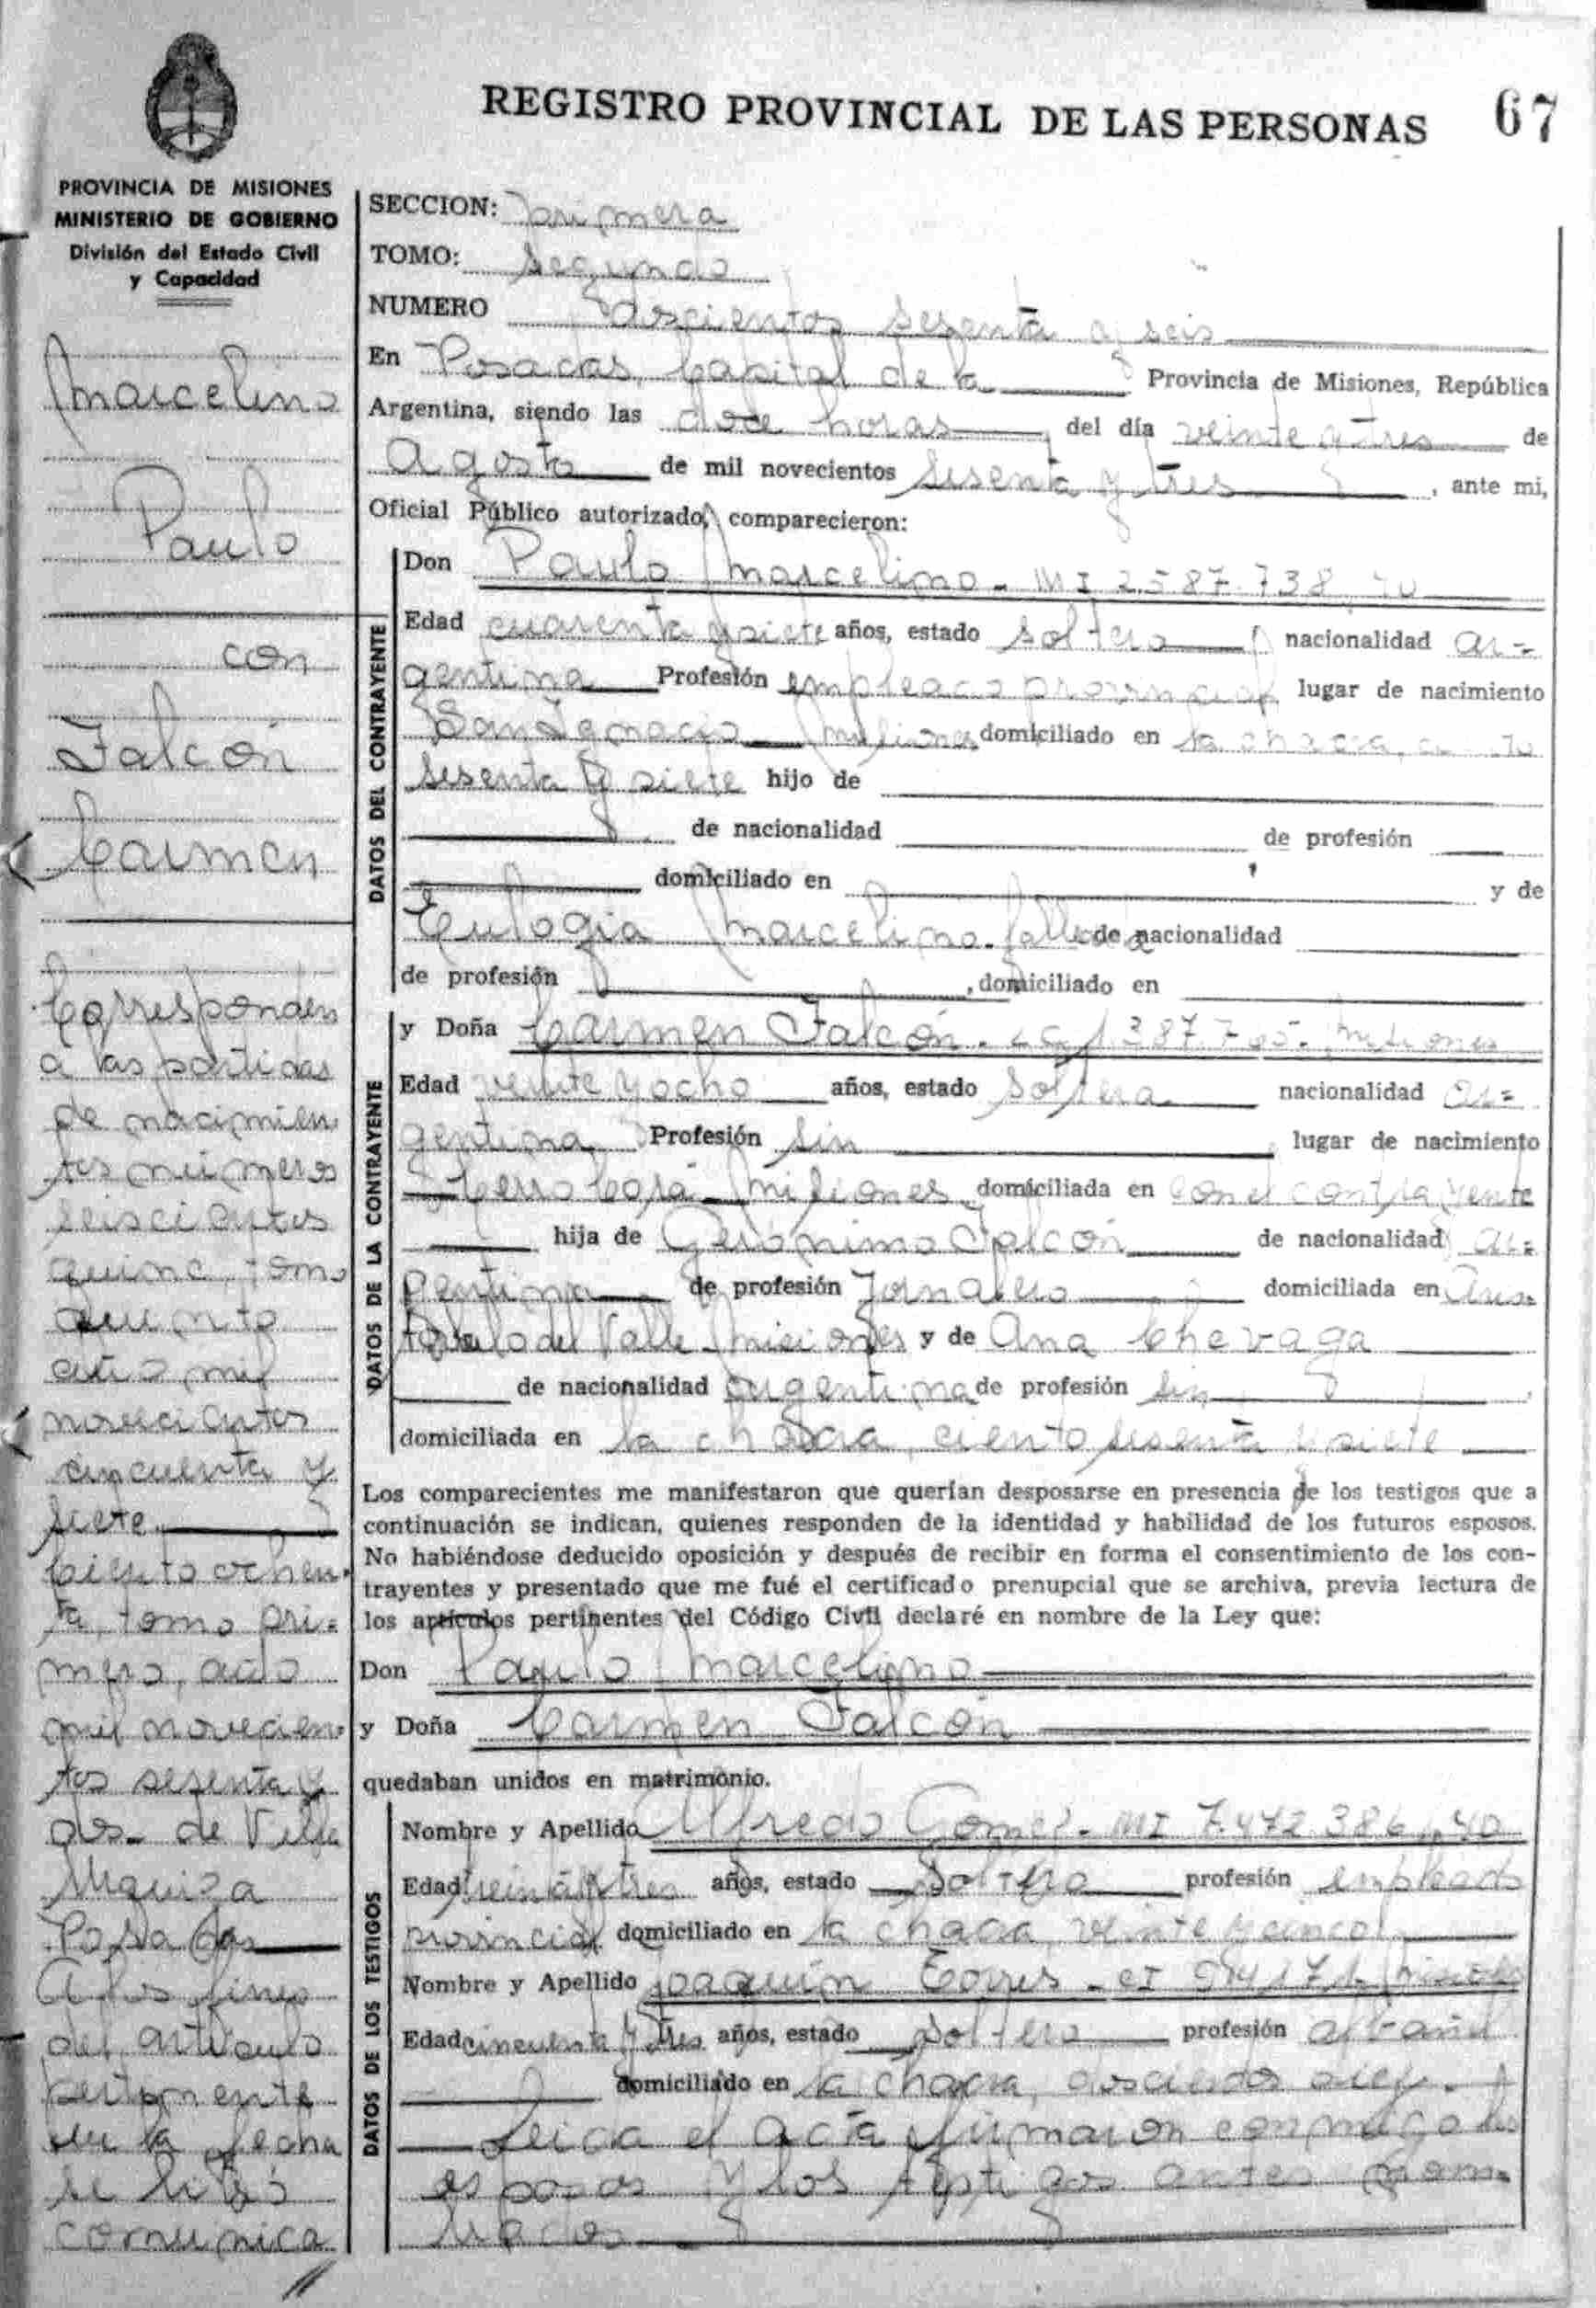 REGISTRO PROVINCIAL DE LAS PERSONAS 67
PROVINCIA DE MISIONES
MINISTERIO DE GOBIERNO
División del Estado Civil
y Capacidad
Marcelino
Paulo
con
Falcón
Carmen
Corresponden
a las partidas
de nacimien
tos números
seiscientos
quince, tomo
quinto
año mil
novecientos
cincuenta y
siete
Ciento ochen-
ta, tomo pri-
mero, año
mil novecien-
tos sesenta y
dos- de Villa
Urquiza
Posadas
A los fines
del artículo
pertinente
en la fecha
se libró
comunica
SECCION: primera
TOMO: segundo
NUMERO doscientos sesenta y seis
En Posadas, Capital de la Provincia de Misiones, República
Argentina, siendo las doce horas del día veinte y tres de
Agosto de mil novecientos sesenta y tres, ante mi,
Oficial Público autorizado, comparecieron:
DATOS DEL CONTRAYENTE
Don Paulo Marcelino - MI 2.587.738
Edad cuarenta y siete años, estado soltero nacionalidad ar-
gentina Profesión empleado provincial lugar de nacimiento
San Ignacio Misiones domiciliado en la chacra,
sesenta y siete hijo de
de nacionalidad de profesión
domiciliado en y de
Eulogia Marcelino - fallecida de nacionalidad
de profesión , domiciliado en
DATOS DE LA CONTRAYENTE
y Doña Carmen Falcón - Misiones
Edad veinte y ocho años, estado soltera nacionalidad ar-
gentina Profesión sin lugar de nacimiento
Cerro Corá - Misiones domiciliada en con el contrayente
hija de Gerónimo Falcón de nacionalidad ar-
gentina de profesión Jornalero domiciliada en Aris-
tóbulo del Valle - Misiones y de Ana Chevaga
de nacionalidad argentina de profesión sin
domiciliada en la chacra, ciento sesenta y siete
Los comparecientes me manifestaron que querían desposarse en presencia de los testigos que a
continuación se indican, quienes responden de la identidad y habilidad de los futuros esposos.
No habiéndose deducido oposición y después de recibir en forma el consentimiento de los con-
trayentes y presentado que me fué el certificado prenupcial que se archiva, previa lectura de
los artículos pertinentes del Código Civil declaré en nombre de la Ley que:
Don Paulo Marcelino
y Doña Carmen Falcón
quedaban unidos en matrimonio.
DATOS DE LOS TESTIGOS
Nombre y Apellido Alfredo Gomez - MI 7.472.386
Edad treinta y tres años, estado soltero profesión empleado
provincial domiciliado en la chacra veinte y cinco
Nombre y Apellido Joaquín Torres - CI 94171
Edad cincuenta y tres años, estado soltero profesión albañil
domiciliado en la chacra, doscientos diez.
Leída el acta firmaron conmigo los
esposos y los testigos antes nom-
brados